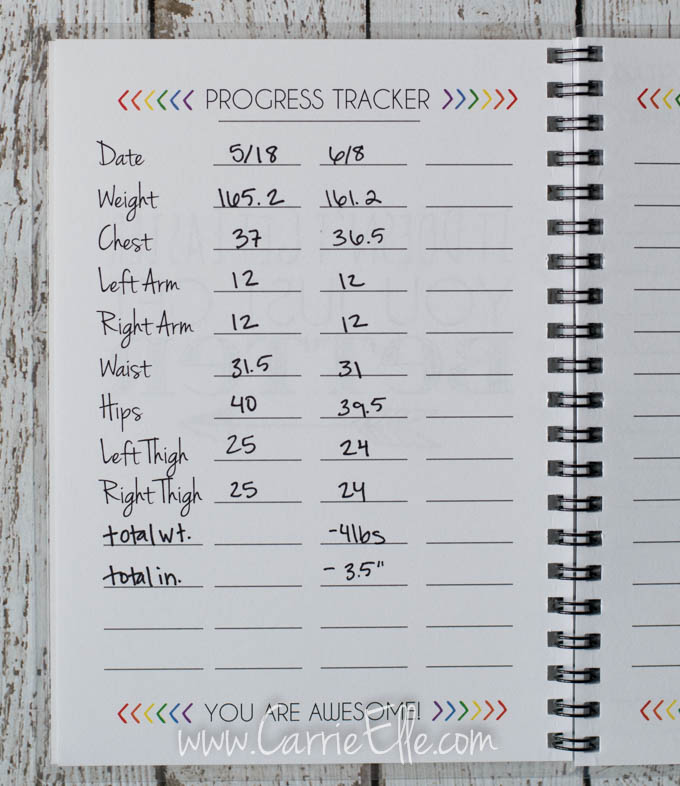 PROGRESS TRACKER
Date 5/18 6/8
Weight 165.2 161.2
Chest 37 36.5
Left Arm 12 12
Right Arm 12 12
Waist 31.5 31
Hips 40 39.5
Left Thigh 25 24
Right Thigh 25 24
total wt. -4lbs
total in. - 3.5"
YOU ARE AWESOME!
www.CarrieElle.com